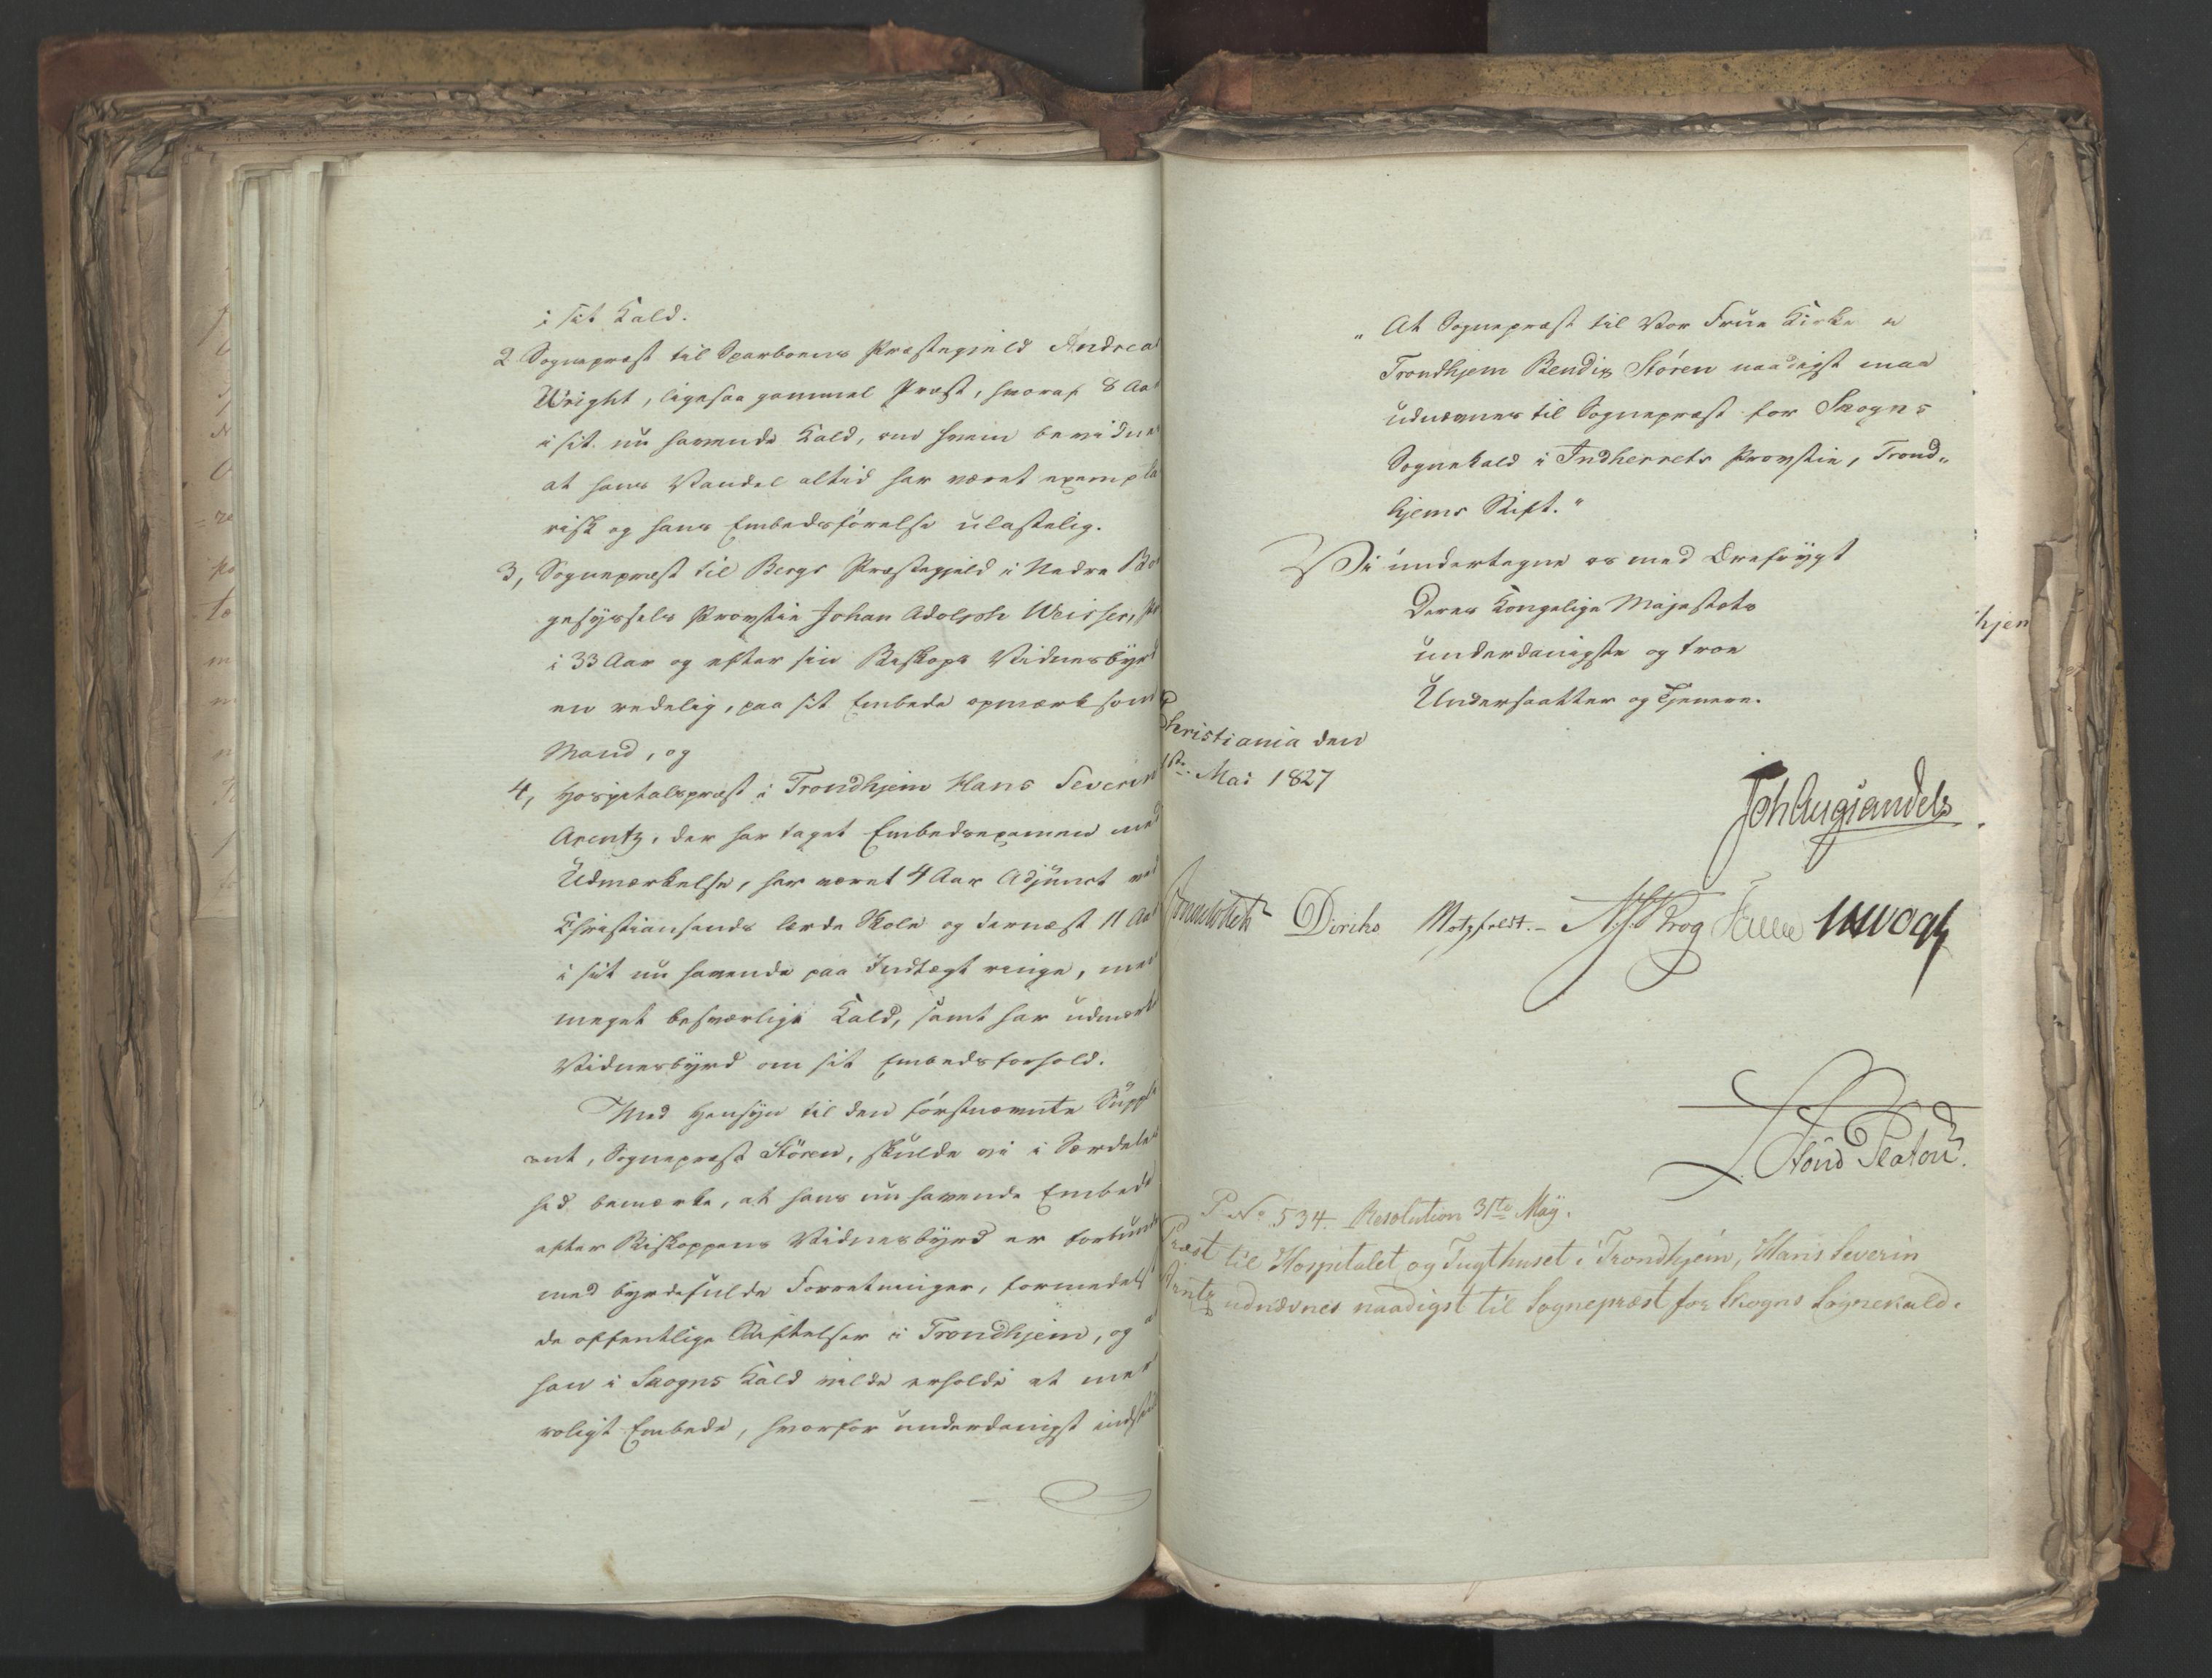 i sit Kald.
2 Sognepræst til Sparboens Præstegjeld Andrea
Wright, ligesaa gammel Præst, hvoraf 8 Aa
i sit nu havende Kald, om hvem bevidne
at hans Vandel altid har været exempla
risk og hans Embedsførelse ulastelig.
3, Sognepræst til Bergs Præstegjeld i Nedre Bor
gesyssels Provstie Johan Adolph Weisser,
i 33 Aar og efter sin Biskops Vidnesbyrd
en redelig, paa sit Embede opmærksom
Mand, og
4, Hospitalspræst i Trondhjem Hans Severin
Arentz, der har taget Embedsexamen med
Udmærkelse, har været 4 Aar Adjunct ved
Christiansands lærde Skole og dernæst 11 Aa
i sit nu havende paa Indtægt ringe, men
meget besværlige Kald, samt har udmærk
Vidnesbyrd om sit Embedsforhold.
Med Hensyn til den førstnævnte Suppli
cant, Sognepræst Stören, skulde vi i Særdeles
hed bemærke, at hans nu havende Embede
efter Biskoppens Vidnesbyrd er forbunde
med byrdefulde Forretninger, formedelst
de offentlige Stiftelser i Trondhjem, og a
han i Skogns Kald vilde erholde et mer
roligt Embede, hvorfor underdanigst indstil
„At Sognepræst til Vor Frue Kirke i
Trondhjem Bendix Stören naadigst maa
udnævnes til Sognepræst for Skogns
Sognekald i Indherrets Provstie, Trond„
hjems Stift."
Vi undertegne os med Ærefrygt
Deres Kongelige Majestæts
underdanigste og troe
Undersaatter og Tjenere.
Christiania den
1ste Mai 1827
Joh Aug Sandels
Diriks Motzfeldt.- Krog Vogt
P. No 534. Resolution 31te May.
Præst til Hospitalet og Tugthuset i Trondhjem, Hans Severin
Arentz udnævnes naadigst til Sognepræst for Skogns Sognekald.
hjem